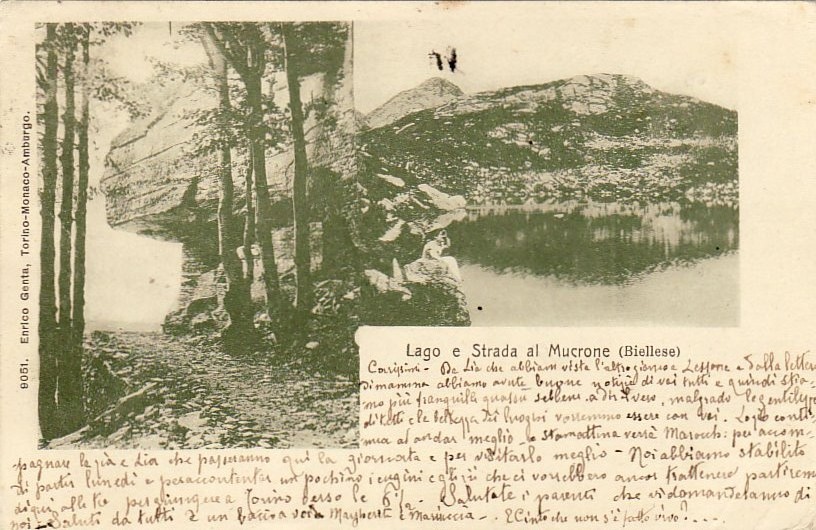 9051. Enrico Genta, Torino-Monaco-Amburgo.
Lago e Strada al Mucrone (Biellese)
Carissimi - Da Lia che abbiam vista l'altro giorno a Lessona e dalla lettera
di mamma abbiamo avute buone notizie di voi tutti e quindi stia-
mo più tranquilli quassù sebbene a dir il vero, malgrado le gentilezze
di tutti e la bellezza dei luoghi vorremmo essere con voi.
nua al andar meglio - stamattina verrà per accom-
pagnare la zia e Lia che passeranno qui la giornata e per visitarlo meglio - Noi abbiamo stabilito
di partir lunedì e per accontentar un pochino i cugini e gli zii che ci vorrebbero ancor trattenere partiremo
di qui alle tre per giungere a Torino verso le 6½. Salutate i parenti che vi domandano di
noi - Saluti da tutti e un bacio a voi Margherita e Mariuccia - E Cinto che non s'è fatto vivo?....